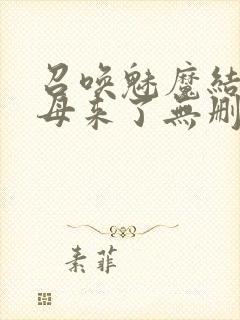 召唤魅魔结
母来了無删
素菲